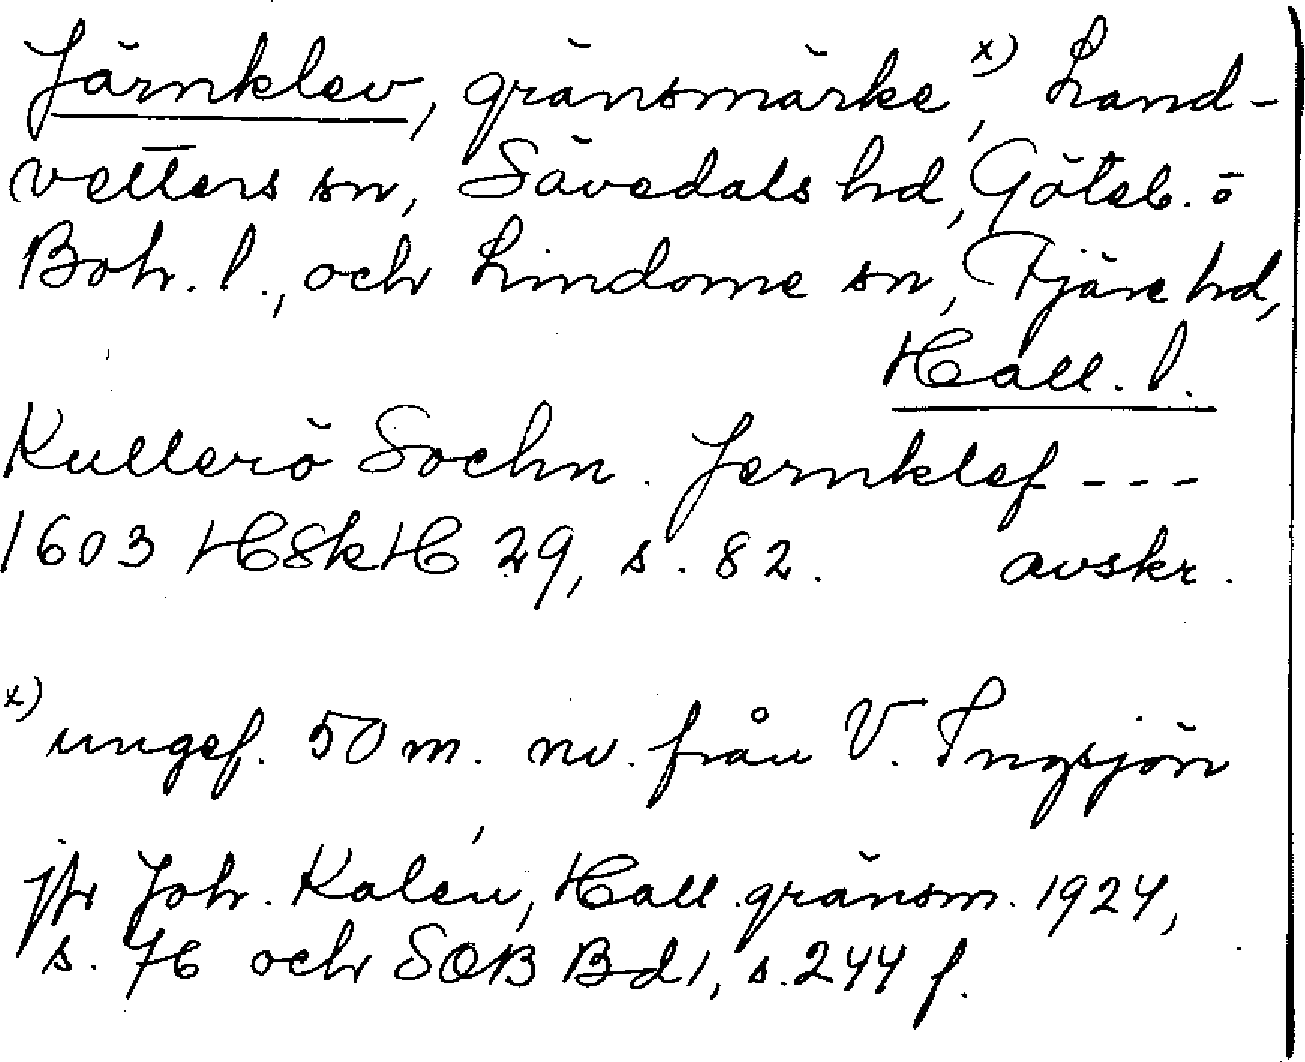 Järnklev, gränsmärke,x) Land-
vetters sn, Sävedals hd, Göteb. ö
Boh. l., och Lindome sn, Fjäre hd,
Hall. l.
Kullerö Sochn. Jernklef ---
1603 HSkH 29, s. 82. avskr.
x) ungef. 50 m. nv. från V. Ingsjön
jfr Joh. Kalén, Hall. gränsm. 1924,
s. 76 och SOB Bd 1, s. 244 f.